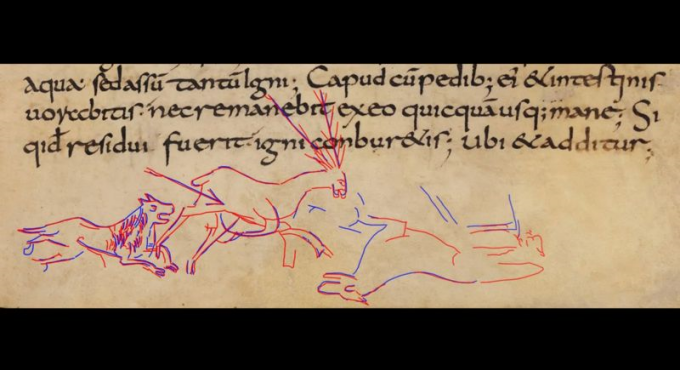 aqua sedassū tantū Igni; Capud cū pedib; ei' & intestinis
uorabitis nec remanebit exeo quicquā usq; mane; Si
qid residui fuerit igni conbur&is; Ubi & additur;